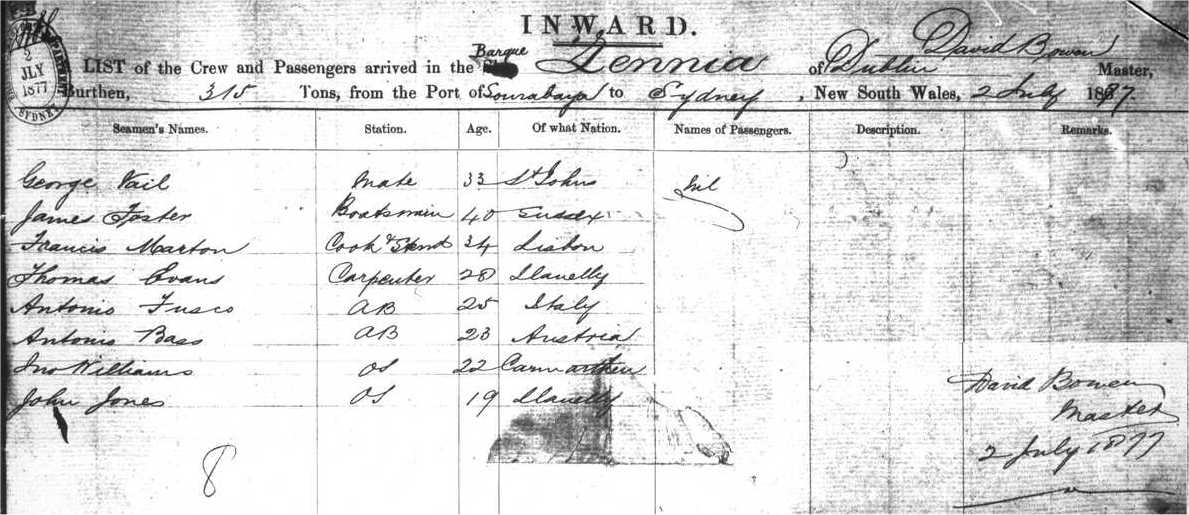 INWARD.
2 JLY 1877 SYDNEY
LIST of the Crew and Passengers arrived in the Barque Zennia of Dublin David Bowen Master,
Burthen, 315 Tons, from the Port of Sourabaya to Sydney, New South Wales, 2 July 1877.
Seamen's Names. Station. Age. Of what Nation. Names of Passengers. Description. Remarks.
George Vail Mate 33 St Johns Nil
James Foster Boatswain 40 Sussex
Francis Marton Cook & Stewd 34 Lisbon
Thomas Evans Carpenter 28 Llanelly
Antonio Fusco AB 25 Italy
Antonio Bass AB 23 Austria
Jno Williams OS 22 Carmarthen
John Jones OS 19 Llanelly
David Bowen
Master
2 July 1877
8